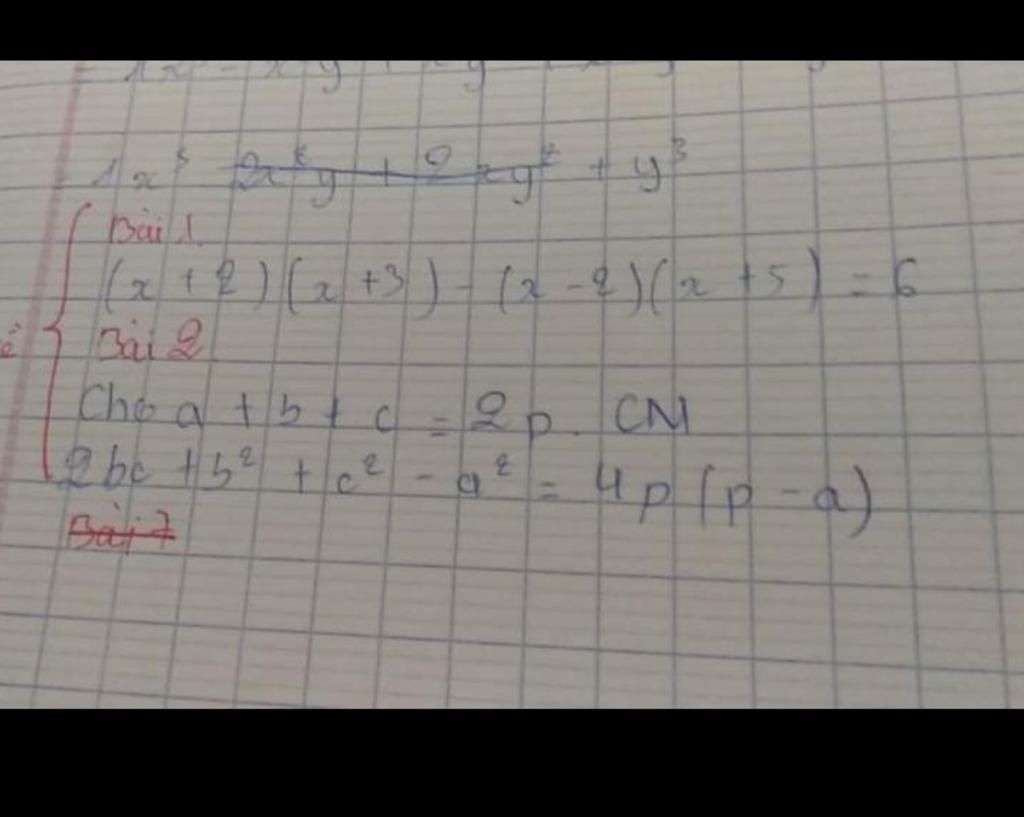 1x³ 2x²y + 2xy² + y³
Bài 1.
(x + 2)(x + 3) - (x - 2)(x + 5) = 6
Bài 2
Cho a + b + c = 2p. CM
2bc + b² + c² - a² = 4p(p - a)
Bài 7